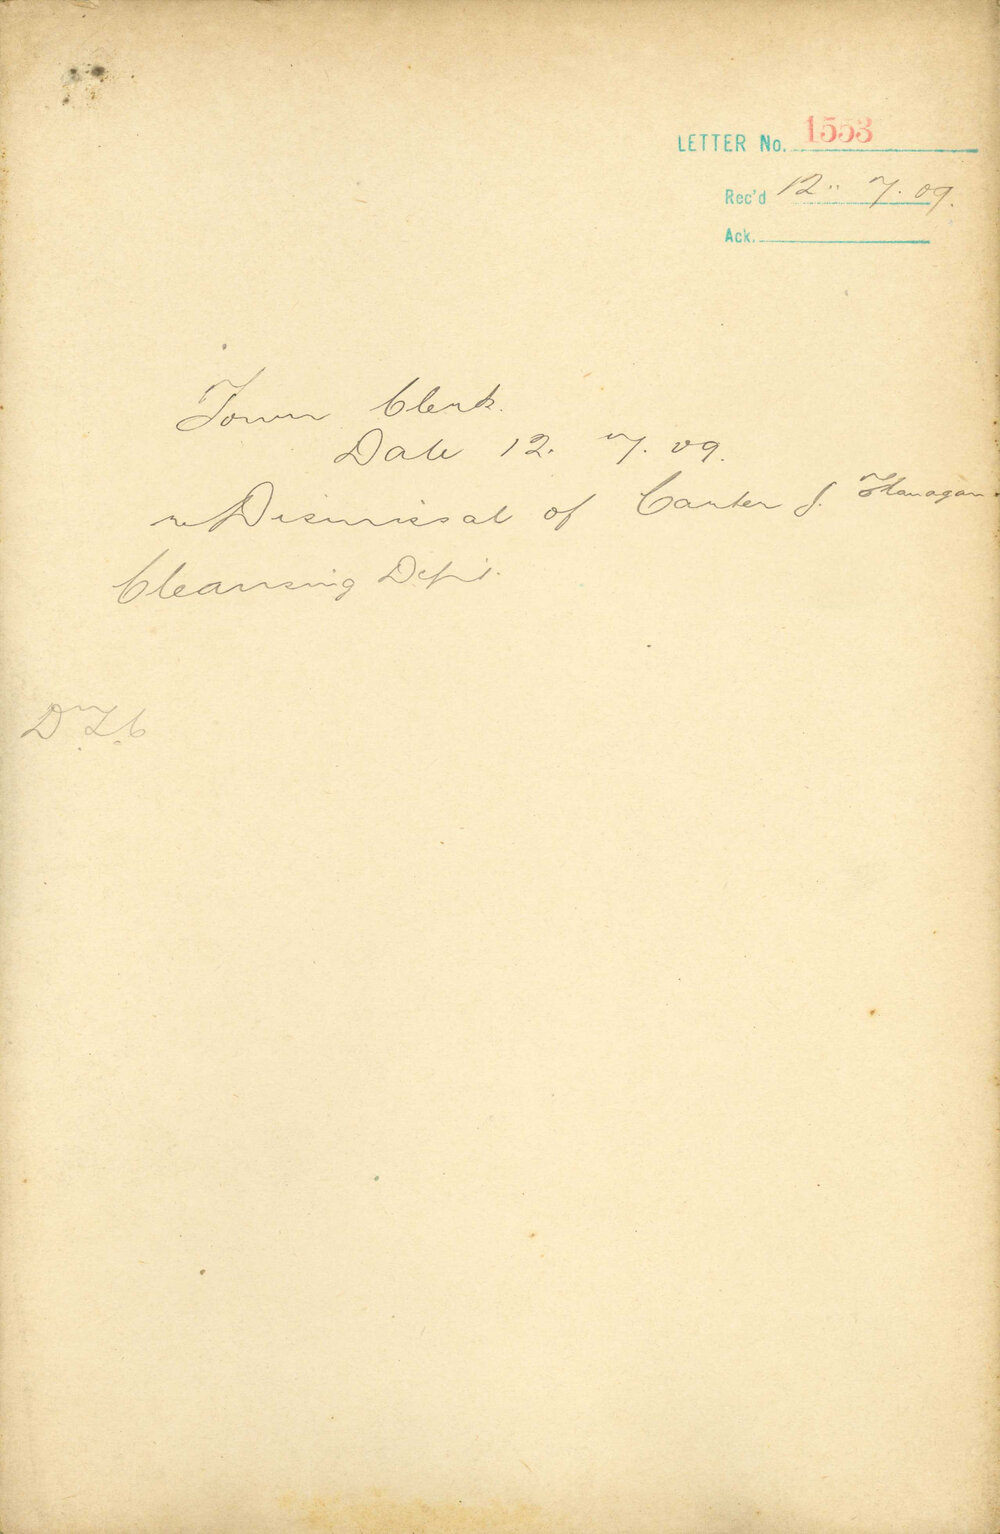 LETTER No. 1553
Rec'd 12. 7. 09.
Ack.
Town Clerk.
Date 12. 7. 09.
re Dismissal of Carter J. Flanagan.
Cleansing Dept.